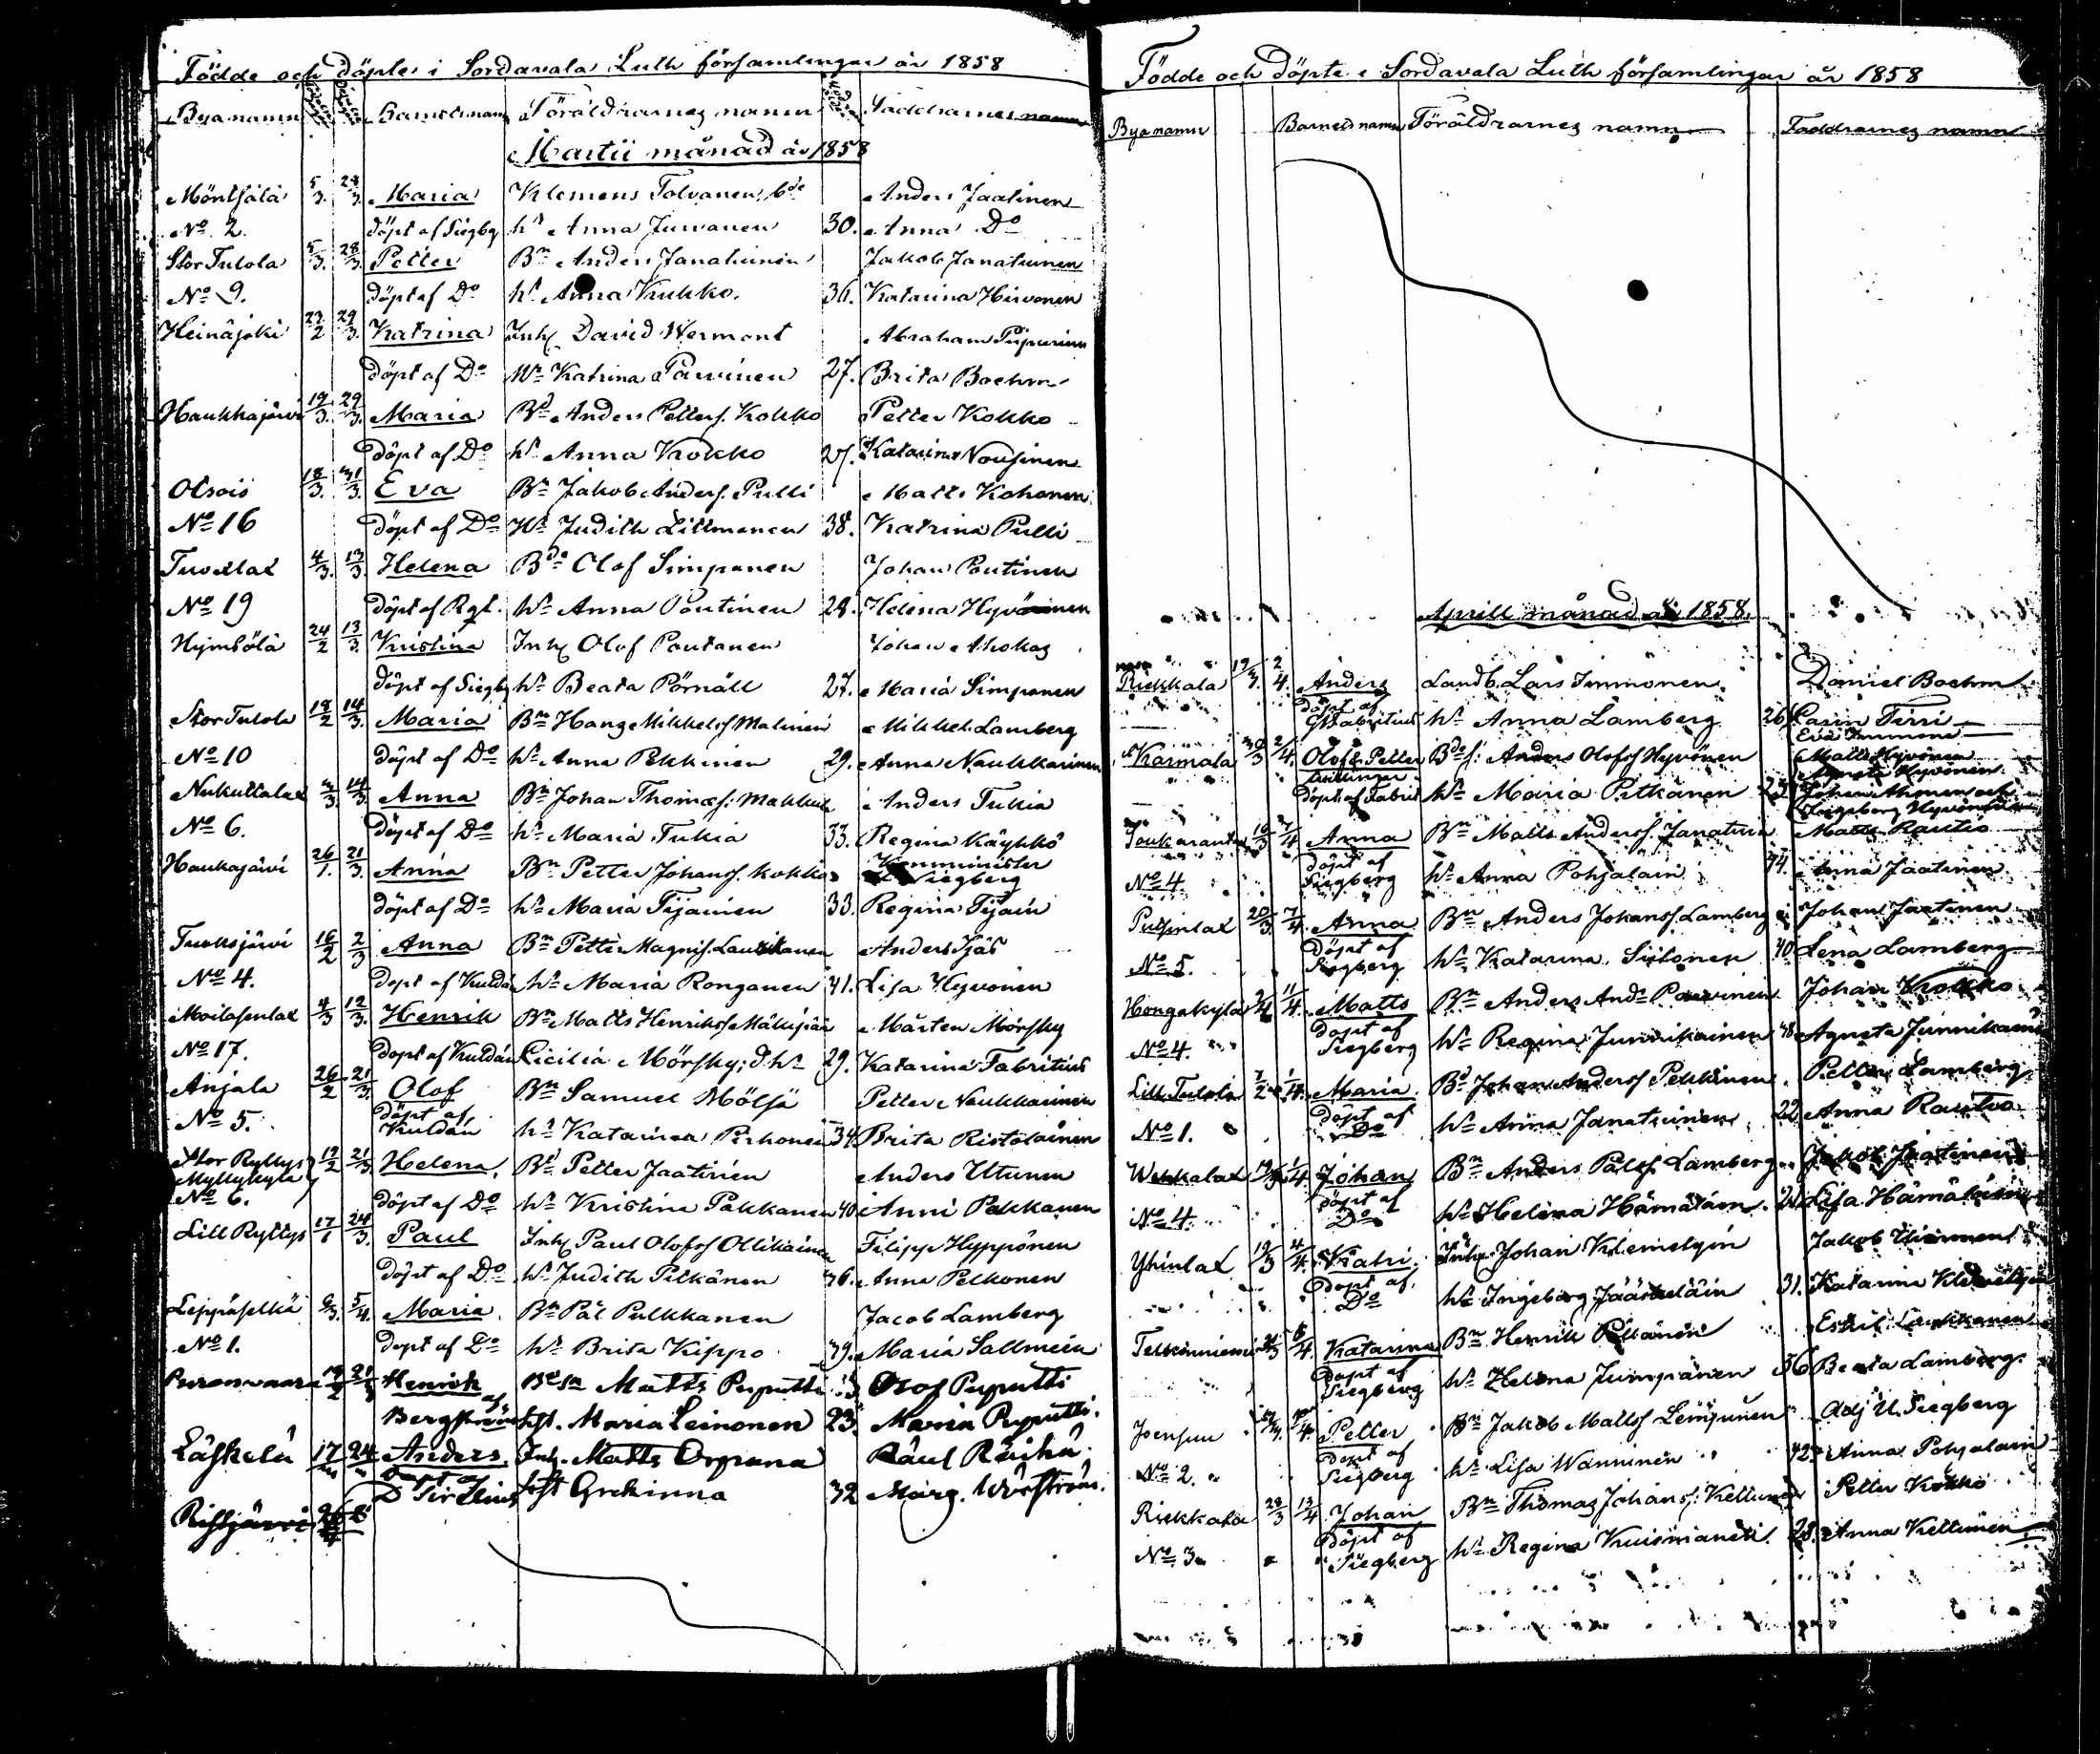 Födde och döpte i Sordavala Luth församlingar år 1858
Byanamn Barnetsnamn Föräldrarnes namn Faddrarnes namn
Martii månad år 1858
Möntsälä 5/3. 28/3. Maria Klemens Tolvanen, Anders Jaatinen
No 2. döpt af Siegbg hr Anna Juvanen 30. Anna Do
Stor Tulola 5/3. 28/3. Petter Bn Anders Janatuinen Jakob Janatuinen
No 9. döpt af Do hr Anna Kukko. 36. Katarina Hirvonen
Heinäjoki 23/2 29/3. Katrina Inh David Wermont Abraham
döpt af Do Katrina Parvinen 27. Brita Boehm
Haukkajärvi 19/3. 29/3. Maria Bd Anders Petterf. Kokko Petter Kokko
döpt af Do hr Anna Kokko 27. Katarina Nousinen
Otsois 18/3. 31/3. Eva Bn Jakob Andersf. Pulli Matts Kohonen
No 16 döpt af Do Hr Judith Littmanen 38. Katrina Pulli
4/3. 13/3. Helena Bde Olof Simpanen Johan Poutinen
No 19 döpt af Rgt. hr Anna Poutinen 28. Helena Hyvönen
Hympölä 24/2 13/3. Kristina Inh Olof Poutanen Johan Ahokas
döpt af Siegbg hr Beata Pörnäll 27. Maria Simpanen
Stor Tulola 18/2 14/3. Maria Bn Hans Mikkelsf Malinen Mikkel Lamberg
No 10 döpt af Do hr Anna Pekkinen 29. Anna Naukkarinen
Nukuttalax 4/3. 14/3. Anna Bn Johan Thomasf. Anders Tukia
No 6. döpt af Do hr Maria Tukia 33. Regina Käyhkö
Haukajärvi 26/1. 21/3. Anna Bn Petter Johansf. Kokko Komminister Siegberg
döpt af Do hr Maria Tijainen 33. Regina Tijain
Tuoksjärvi 16/2 2/3 Anna Bn Petter Magnisf. Anders
No 4. döpt af Kuldán hr Maria Ronganen 41. Lisa Hyvönen
4/3 12/3. Henrik Bn Matts Henriksf Mårten Mörsky
No 17. döpt af Kuldán Cicilia Mörsky, 29. Katarina Fabritius
Anjala 26/2 21/3. Olof Bn Samuel Mölsä Petter Naukkarinen
No 5. döpt af Kuldán hr Katarina Pirhonen 34. Brita Ristolainen
Stor Ryttys 19/2 21/3 Helena Bd Petter Jaatinen Anders Utunen
Myllykylä
No 6. döpt af Do hr Kristina Pakkanen 40. Anni Pakkanen
Lill Ryttys 17/1 24/3. Paul Inh Paul Olofsf Ollikainen Filipp Hyppönen
döpt af Do hr Judith Pitkänen 36. Anna Pelkonen
Leppäselkä 6/3. 5/4. Maria Bn Pål Pulkkanen Jacob Lamberg
No 1. döpt af Do hr Brita Kippo 39. Maria Sallmein
Henrik Matts Puputti Olof Puputti
af Bergström hst. Maria Leinonen 23. Maria Puputti.
Läskelä 17 24 Anders Inh. Matts Orpana Paul Räihä
döpt af D Sirelius hst Grekinna 32 Marg. Wårström.
Ristjärvi
Födde och Döpte i Sordavala Luth församlingar år 1858
Byanamn Barnetsnamn Föräldrarnes namn Faddrarnes namn
Aprill månad år 1858.
Riekkala 19/3. 2/4. Anders Landb. Lars Immonen Daniel Boehm
döpt af Fabritius hr Anna Lamberg 26. Carin Tirri
Eva Immonen
Karmala 2/4. Olof & Petter Bde f. Anders Olofsf Hyvönen Matts Hyvönen
tvillingar Agneta Hyvönen
döpt af Fabrit hr Maria Pitkänen 25. Johan
Ingeborg Hyvönen
Toukaranta 16/3 7/4 Anna Bn Matts Andersf. Janatuin Matts Rautio
No 4. döpt af Siegberg hr Anna Pohjalain 44. Anna Jaatinen
Putsinlax 20/3 7/4. Anna Bn Anders Johansf. Lamberg Johan Jaatinen
No 5. döpt af Siegberg hr Katarina Siitonen 40 Lena Lamberg
Hongakylä 11/4. Matts Bn Anders Parvinen Johan Kokko
No 4. döpt af Siegberg hr Regina Junnikainen 48 Agneta Junnikain
Lill Tulola Maria Bd Johan Andersf Pekkinen Petter Lamberg
No 1. döpt af Do hr Anna Janatuinen 22 Anna Rautio
Johan Bn Anders Pålsf. Lamberg Jakob Jaatinen
No 4. döpt af Do hr Helena Hämäläin. Lisa Hämäläinen
Yhinlax 19/3 4/4. Katri Inh Johan Klemetyin Jakob
döpt af Do hr Ingeborg Jääskeläin 31. Katarina
Telkinniemi 5/4. Katarina Bn Henrik Pitkänen Eskil Laukkanen
döpt af Siegberg hr Helena Jumpänen 36 Beata Lamberg
Joensuu Petter Bn Jakob Mattsf Adj U. Siegberg
No 2. döpt af Siegberg hr Lisa Wanninen 42. Anna Pohjalain
Riekkala 28/3 13/4 Johan Bn Thomas Johansf. Kettunen Petter Kokko
No 3. döpt af Siegberg hr Regina 28. Anna Kettunen